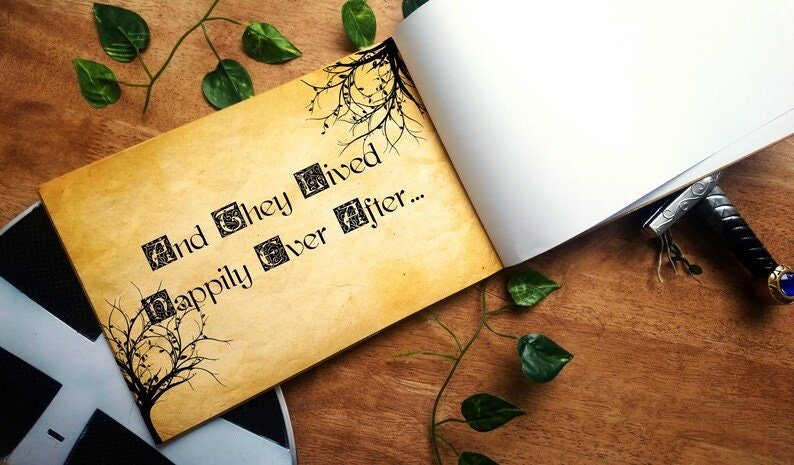 And They Lived
Happily Ever After...